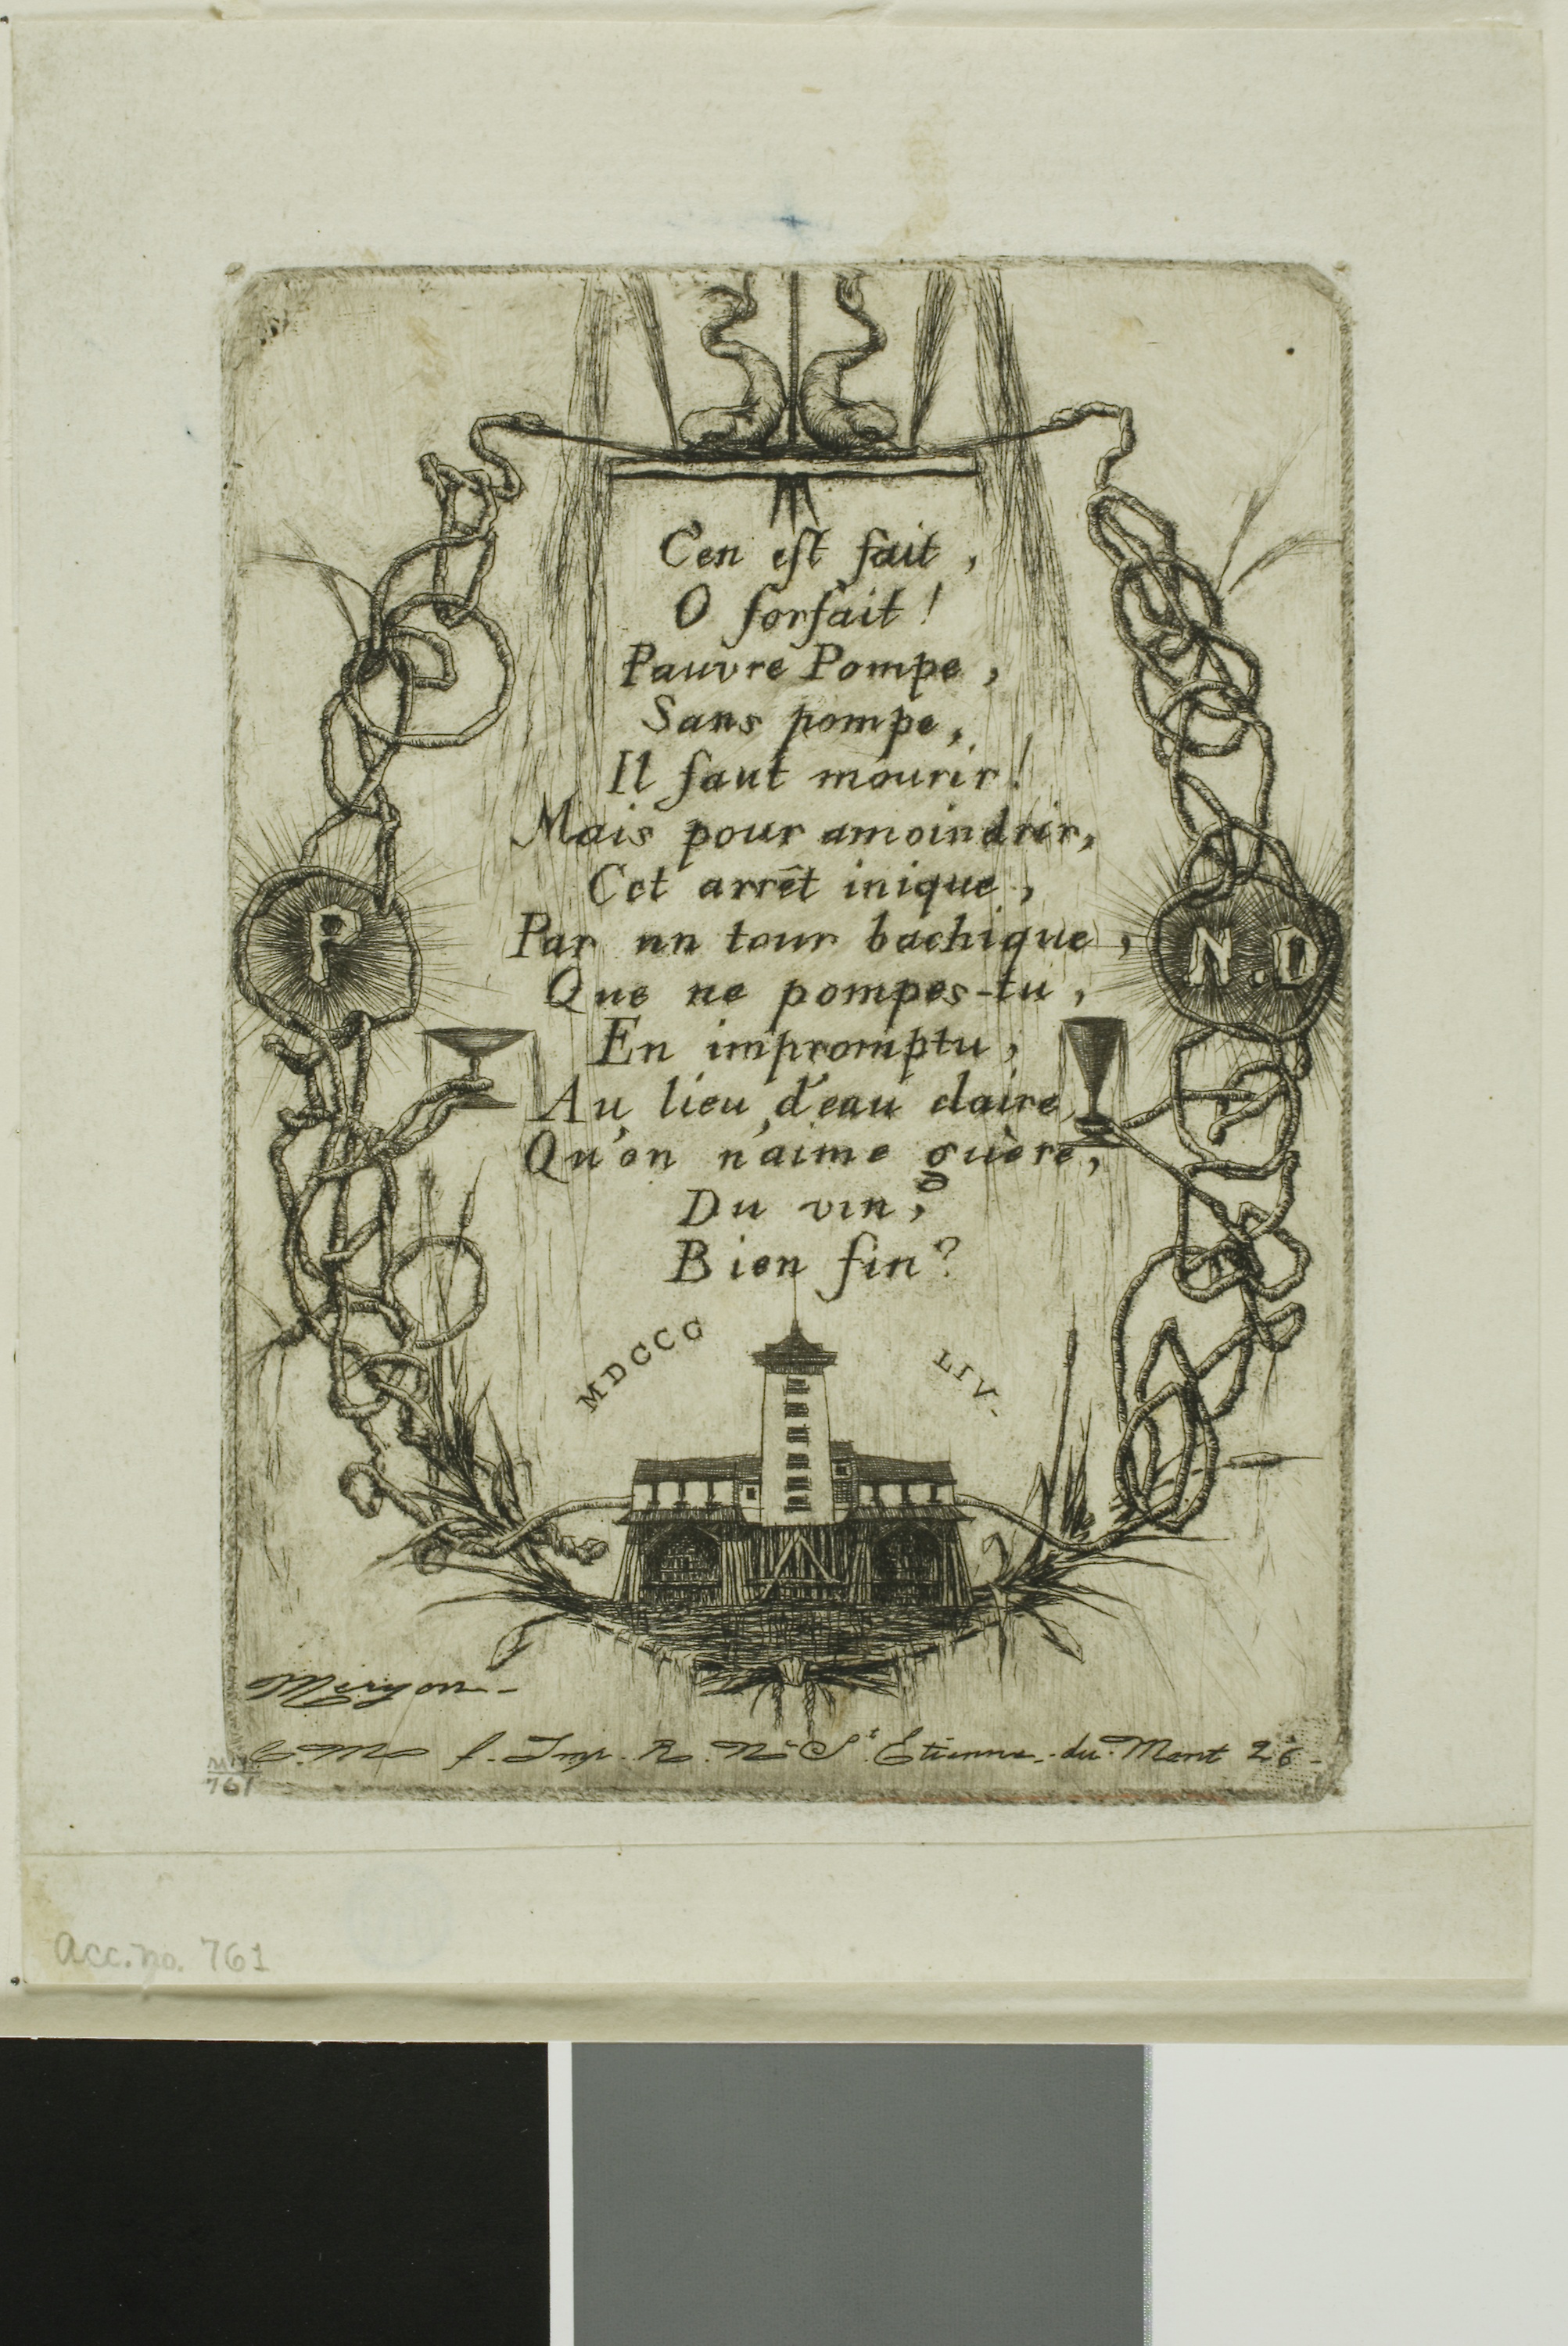 C'en est fait,
O forfait!
Pauvre Pompe,
Sans pompe,
Il faut mourir!
Mais pour amoindrir,
Cet arrêt inique,
Par un tour bachique,
Que ne pompes-tu,
En impromptu,
Au lieu d'eau claire,
Qu'on n'aime guère,
Du vin,
Bien fin?
P
N.D
MDCCC LIV-
Meryon-
C. M f. Imp. R. Ne St. Etienne-du-Mont 26-
761
acc. no. 761